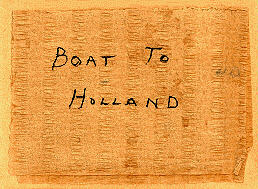 BOAT TO
HOLLAND